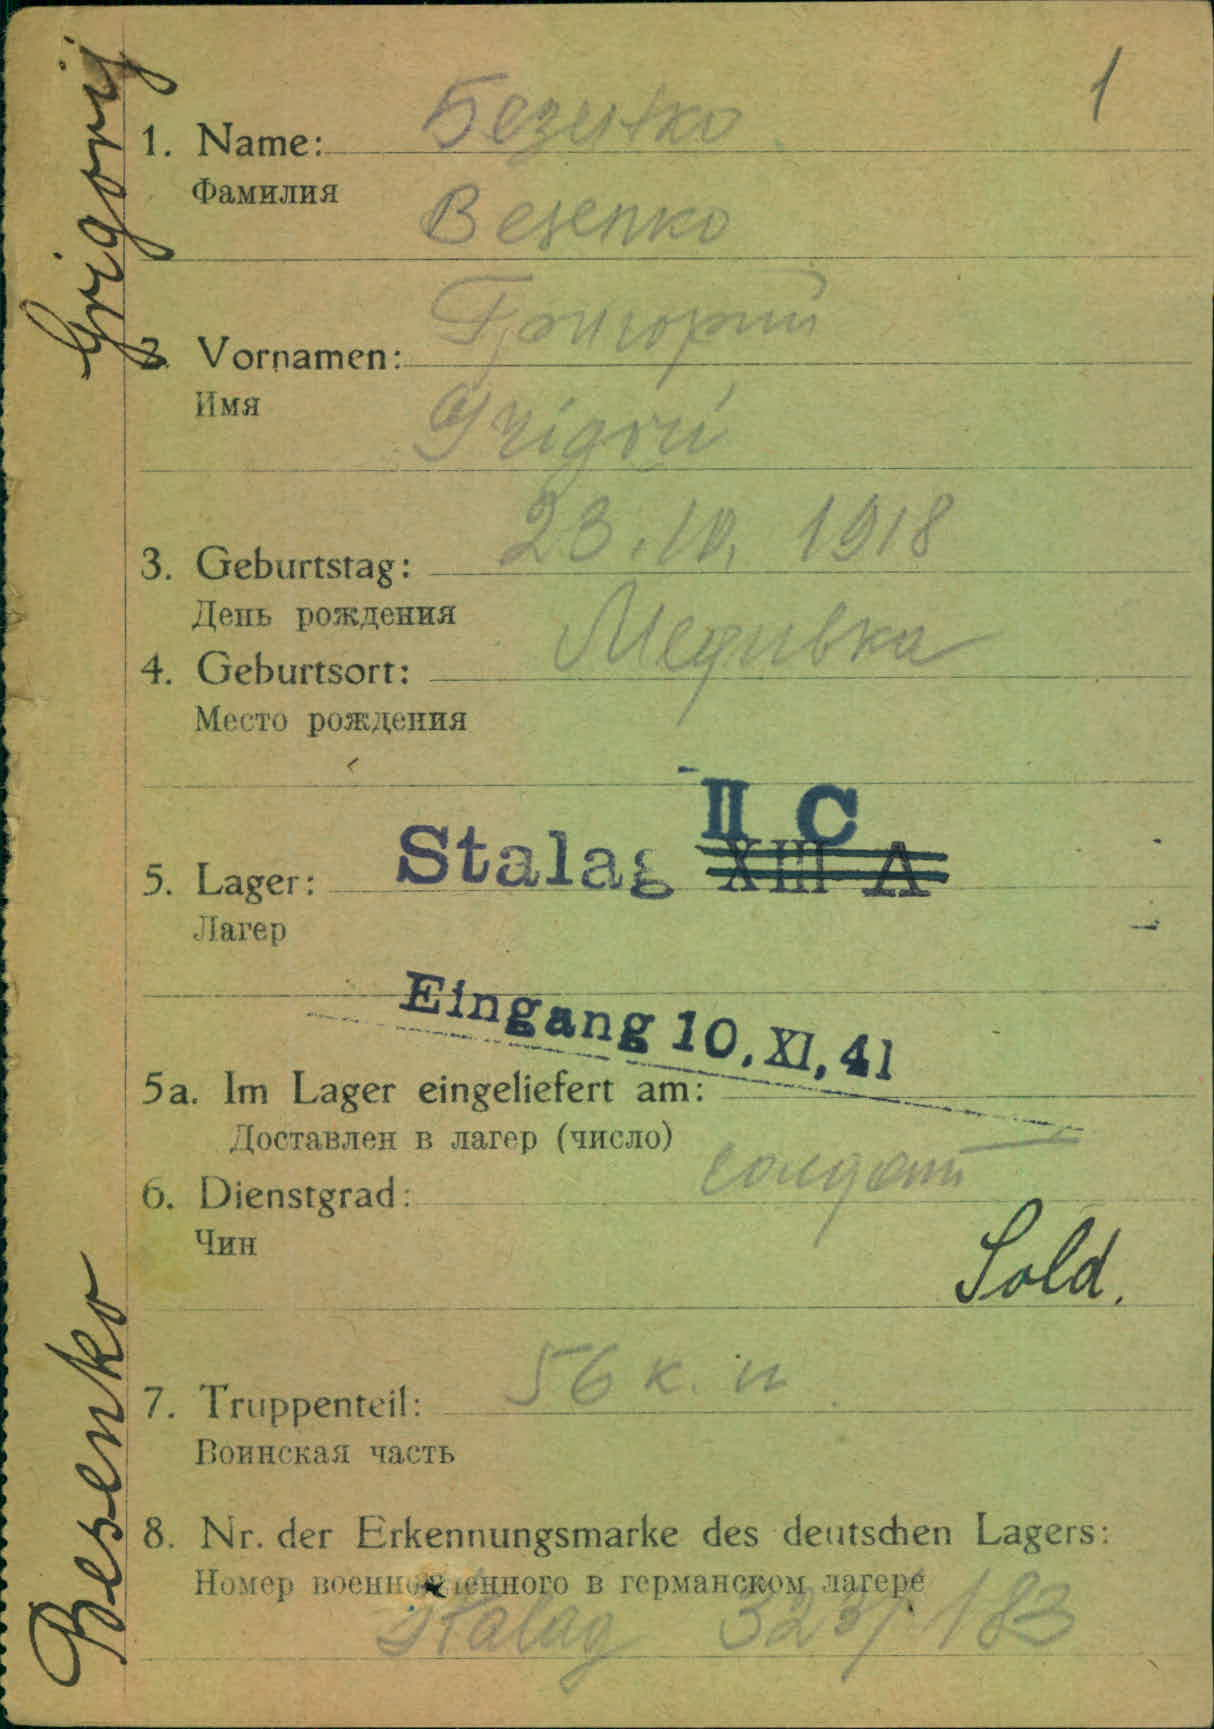 1
Grigorij
Besenko
1. Name: Безенко
Фамилия
Besenko
2. Vornamen: Григорий
Имя
Grigori
3. Geburtstag: 23.10.1918
День рождения
4. Geburtsort: Медивка
Место рождения
II C
5. Lager: Stalag XIII A
Лагер
Eingang 10.XI.41
5a. Im Lager eingeliefert am:
Доставлен в лагер (число)
6. Dienstgrad: солдат
Чин
Sold.
7. Truppenteil: 56 к. п
Воинская часть
8. Nr. der Erkennungsmarke des deutschen Lagers:
Номер военнопленного в германском лагере
Stalag 323/183